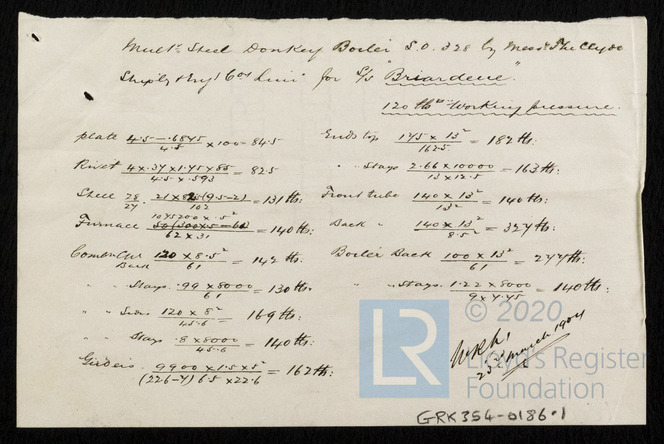 Multr Steel Donkey Boiler S.O. 328 by Messrs The Clyde
Shipb & Engr Coy Limd for S/s "Briardene".
120 lbs Working pressure.
Plate 4.5 - .6875 / 4.5 x 100 = 84.5
Rivet 4 x .37 x 1.75 x 85 / 4.5 x .593 = 825
Shell (9.5-2) / 102 = 131 lbs:
1045200 x .5²
Furnace / 62 x 31 = 140 lbs:
Combn Chr Back 120 x 8.5² / 61 = 142 lbs:
" " Stays .99 x 8000 / 61 = 130 lbs:
" " Sides 120 x 8² / 45.6 = 169 lbs:
" " Stays .8 x 8000 / 45.6 = 140 lbs:
Girders 9900 x 1.5 x 5² / (22.6-7) 6.5 x 22.6 = 162 lbs:
Ends top 175 x 13² / 162.5 = 182 lbs:
" " Stays 2.66 x 10000 / 13 x 12.5 = 163 lbs:
Front tube 140 x 13² / 13² = 140 lbs:
Back " 140 x 13² / 8.5² = 327 lbs:
Boiler Back 100 x 13² / 61 = 277 lbs:
" " Stays 1.22 x 8000 / 9 x 7.75 = 140 lbs:
23rd March 1904
GRK354-0186.1
© 2020
LR
Lloyd's Register
Foundation